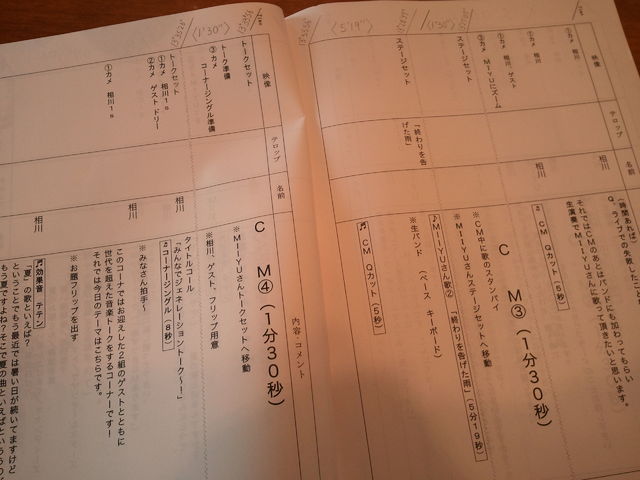 映像
テロップ
名前
①カメ 相川
①カメ 相川
①カメ 相川、ゲスト
③カメ MIYUにズーム
ステージセット
ステージセット
「終わりを告げた雨」
相川
相川
Q、ライブでの失敗、どこ
それではCMのあとはバンドにも加わってもらい
生演奏でMIYUさんに歌って頂きたいと思います。
♬ CM Qカット（5秒）
C M③（1分30秒）
※CM中に歌のスタンバイ
※MIYUさんステージセットへ移動
♪MIYUさん歌② 「終わりを告げた雨」（5分19秒）
※生バンド （ベース キーボード）
♬ CM Qカット（5秒）
〈5'19"〉
〈1'30"〉
映像
テロップ
名前
内容・コメント
トークセット
トーク準備
③カメ コーナージングル準備
トークセット
①カメ 相川1s
②カメ ゲスト ドリー
①カメ 相川1s
相川
相川
相川
C M④（1分30秒）
※MIYUさんトークセットへ移動
※相川、ゲスト、フリップ用意
タイトルコール
「みんなでジェネレーショントーク〜！」
♬コーナージングル（8秒）
※みなさん拍手〜
このコーナーではお迎えした2組のゲストとともに
世代を超えた音楽トークをするコーナーです！
それでは今日のテーマはこちらです。
※お題フリップを出す
♬効果音 テテン
「夏」の歌といえば？
ということでもう最近では暑い日が続いてますけど
もう夏ですよね？そこで夏の曲といえばという